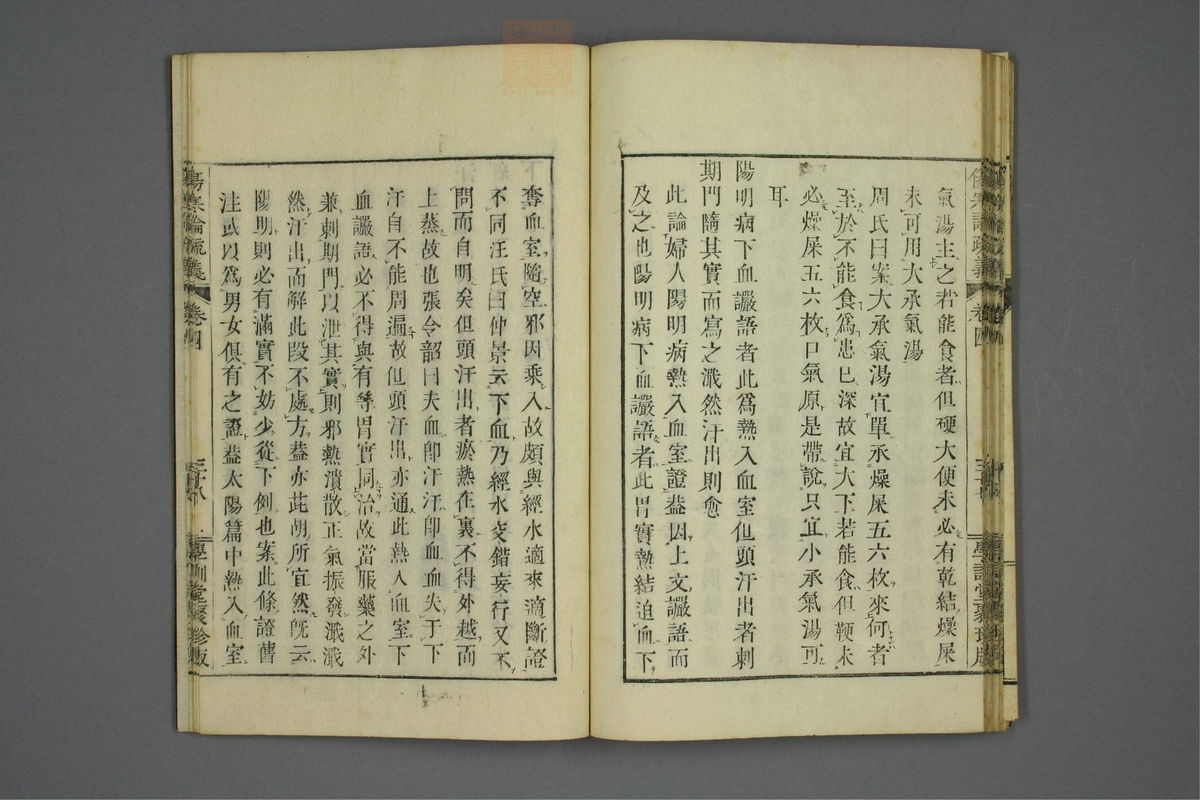 氣湯主之若能食者但硬大便未必有乾結燥屎
未可用大承氣湯
周氏曰案大承氣湯宜單承燥屎五六枚來何者
至於不能食爲患已深故宜大下若能食但鞕未
必燥屎五六枚口氣原是帶說只宜小承氣湯可
耳
陽明病下血讝語者此爲熱入血室但頭汗出者刺
期門隨其實而寫之濈然汗出則愈
此論婦人陽明病熱入血室證葢因上文讝語而
及之也陽明病下血讝語者此胃實熱結迫血下
奪血室隨空邪因乘入故頗與經水適來適斷證
不同汪氏曰仲景云下血乃經水交錯妄行又不
問而自明矣但頭汗出者瘀熱在裏不得外越而
上蒸故也張令韶曰夫血卽汗汗卽血血失于下
汗自不能周遍故但頭汗出亦通此熱入血室下
血讝語必不得與有等胃實同治故當服藥之外
兼刺期門以泄其實則邪熱潰散正氣振發濈濈
然汗出而解此段不處方葢亦茈胡所宜然旣云
陽明則必有滿實不妨少從下例也案此條證舊
注或以爲男女俱有之證葢太陽篇中熱入血室
傷寒論疏義
卷四
三十八
學訓堂聚珍版